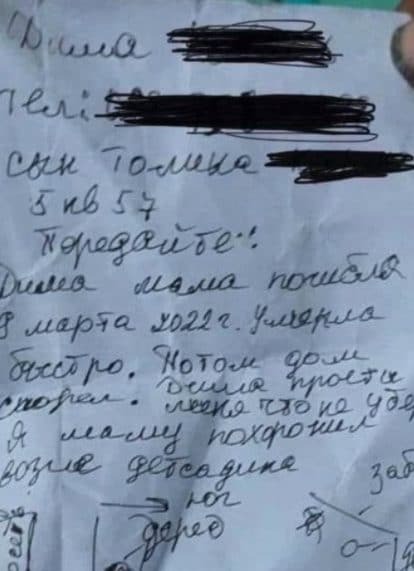 Дима
Тел:
сын Толика
5 кв 57
Передайте:
Дима мама погибла
9 марта 2022г. Умерла
быстро. Потом дом
сгорел. Дима прости
меня что не убер
Я маму похоронил
возле детсадика
юг
дерев